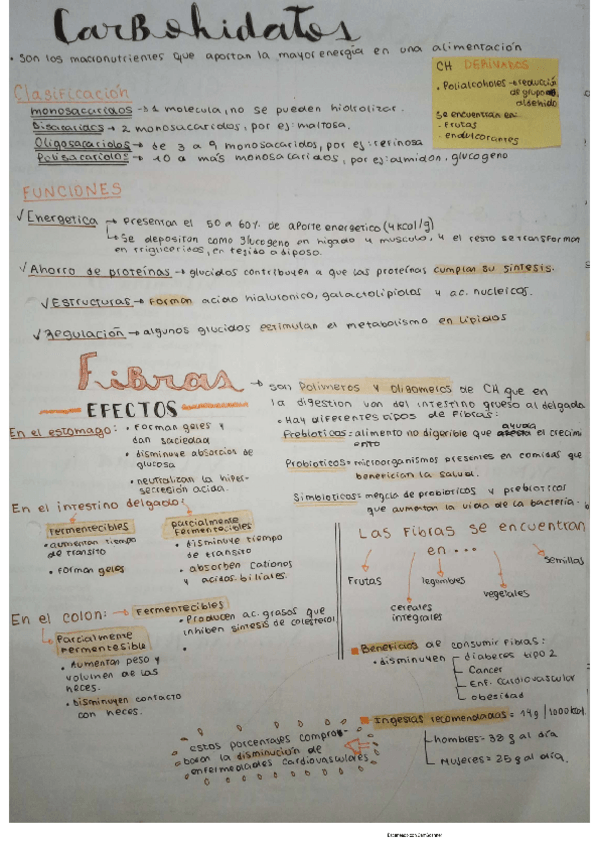 Carbohidratos
• son los macronutrientes que aportan la mayor energía en una alimentación
CH DERIVADOS
• Polialcoholes → reducción
de grupo
aldehido
se encuentran en:
- frutas
- endulcorantes
Clasificación
monosacaridos → 1 molecula, no se pueden hidrolizar.
Disacaridos → 2 monosacaridos, por ej: maltosa.
Oligosacaridos → de 3 a 9 monosacaridos, por ej: refinosa
Polisacaridos → 10 a más monosacaridos, por ej: almidón, glucogeno
FUNCIONES
√ Energetica → Presentan el 50 a 60% de aporte energetico (4 kcal/g)
↳ Se depositan como glucogeno en higado y musculo, y el resto se transforman
en trigliceridos, en tejido adiposo.
√ Ahorro de proteínas → glucidos contribuyen a que las proteínas cumplan su sintesis.
√ Estructuras → Forman acido hialuronico, galactolipidos y ac. nucleicos.
√ Regulación → algunos glucidos estimulan el metabolismo en lipidos
Fibras → son Polimeros y Oligomeros de CH que en
la digestion van del intestino grueso al delgado
• Hay diferentes tipos de fibras:
Prebioticos = alimento no digerible que ayuda el crecimi
ento
Probioticos = microorganismos presentes en comidas que
benefician la salud.
Simbioticos = mezcla de probioticos y prebioticos
que aumentan la vida de la bacteria.
EFECTOS
En el estomago: • Forman geles y
dan saciedad
• disminuye absorcion de
glucosa
• neutralizan la hiper-
secresión acida.
En el intestino delgado:
Fermentecibles
• aumentan tiempo
de transito
• Forman geles
parcialmente
fermentecibles
• disminuye tiempo
de transito
• absorben cationes
y acidos biliales.
En el colon: → Fermentecibles
• Producen ac. grasos que
inhiben sintesis de colesterol.
•
Parcialmente
Fermentesible
• Aumentan peso y
volumen de las
heces.
• Disminuyen contacto
con heces.
Las Fibras se encuentran
en ...
Frutas
cereales
integrales
legumbres
vegetales
semillas
Beneficios de consumir fibras:
• disminuyen
diabetes tipo 2
Cancer
Enf. Cardiovascular
obesidad
Ingestas recomendadas = 14g / 1000 kcal.
hombres = 38 g al día
Mujeres = 25 g al día.
Estos porcentajes compro-
baron la disminución de
enfermedades cardiovasculares
Escaneado con CamScanner